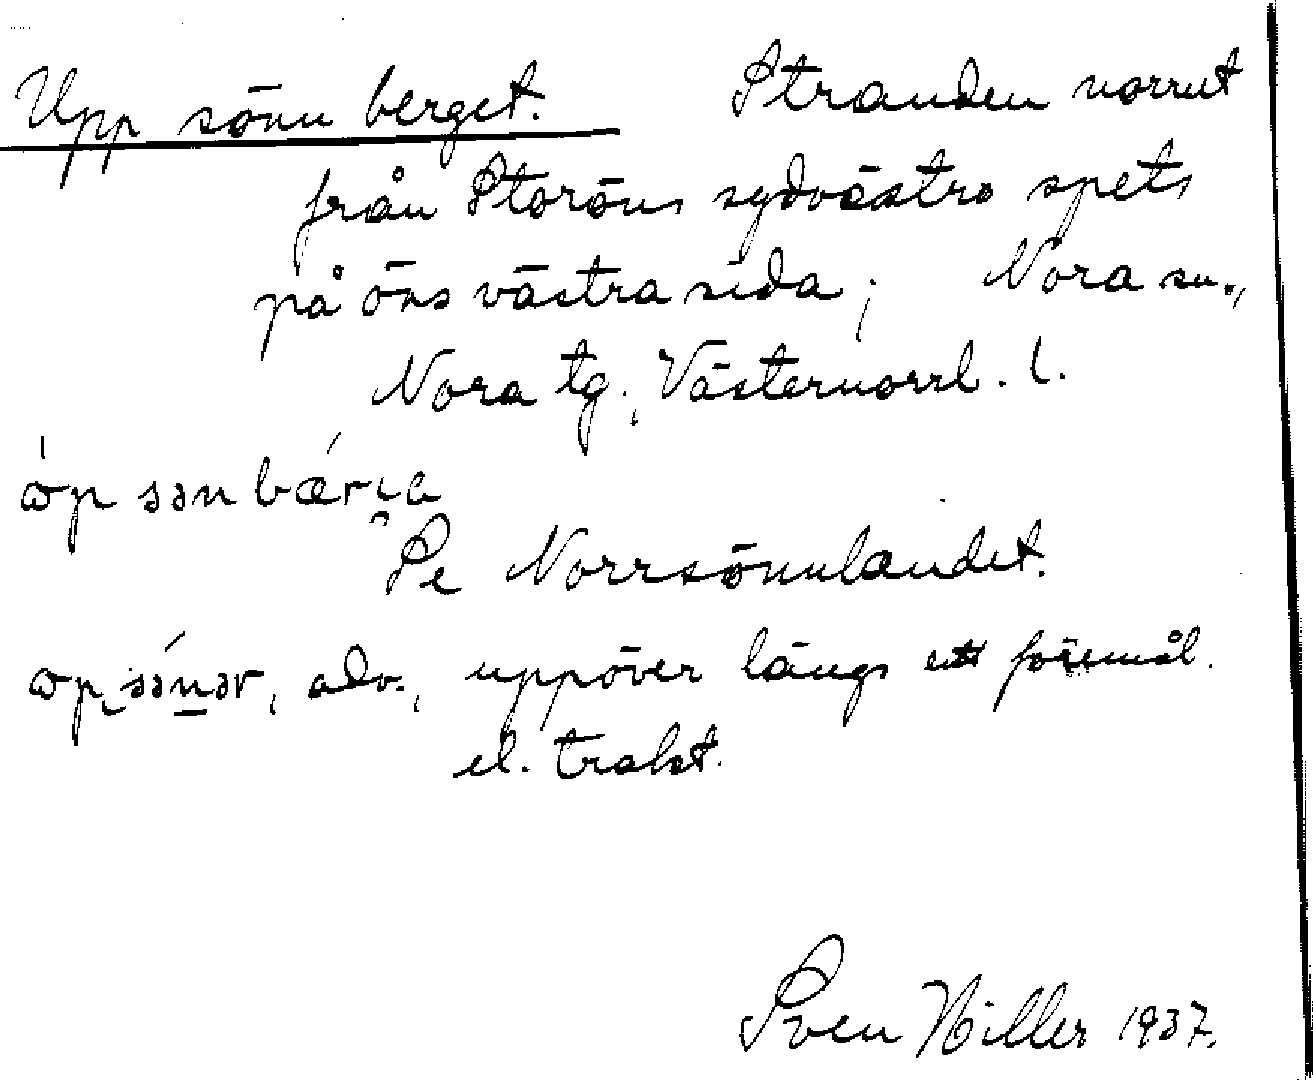 Upp sönn berget. Stranden norrut
från Storöns sydvästra spets
på öns västra sida; Nora sn.,
Nora tg., Västernorrl. l.
Se Norrsönnlandet.
adv., uppöver längs ett föremål
el. trakt.
Sven Hiller 1937.